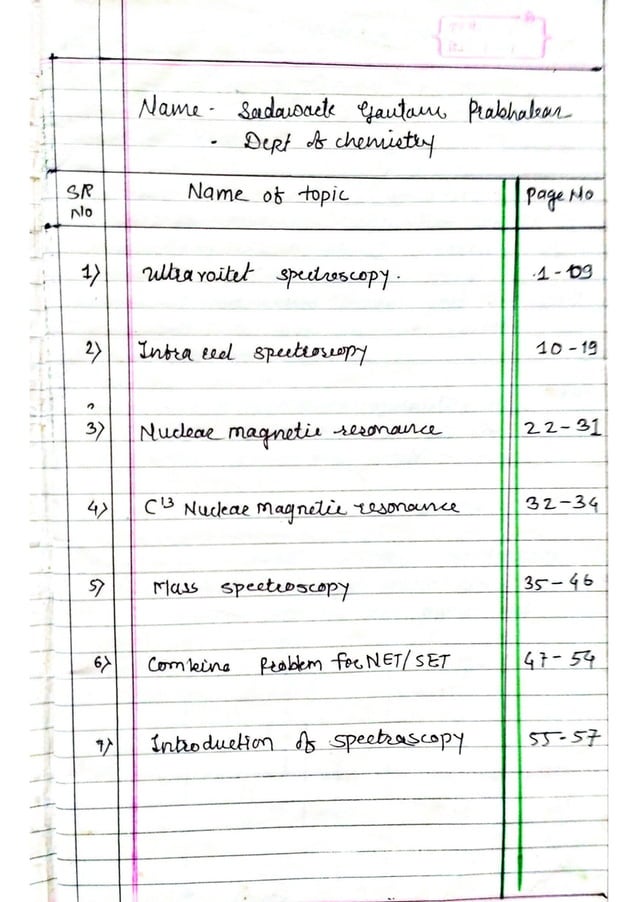 Name - Sadawarte Gautam Prabhakar
- Dept of chemistry
SR No Name of topic Page No
1) Ultravoilet spectroscopy. 1-09
2) Infra red spectroscopy 10-19
3) Nuclear magnetic resonance 22-31
4) C13 Nuclear Magnetic resonance 32-34
5) Mass spectroscopy 35-46
6) Combine Problem for NET/SET 47-54
7) Introduction of spectrascopy 55-57